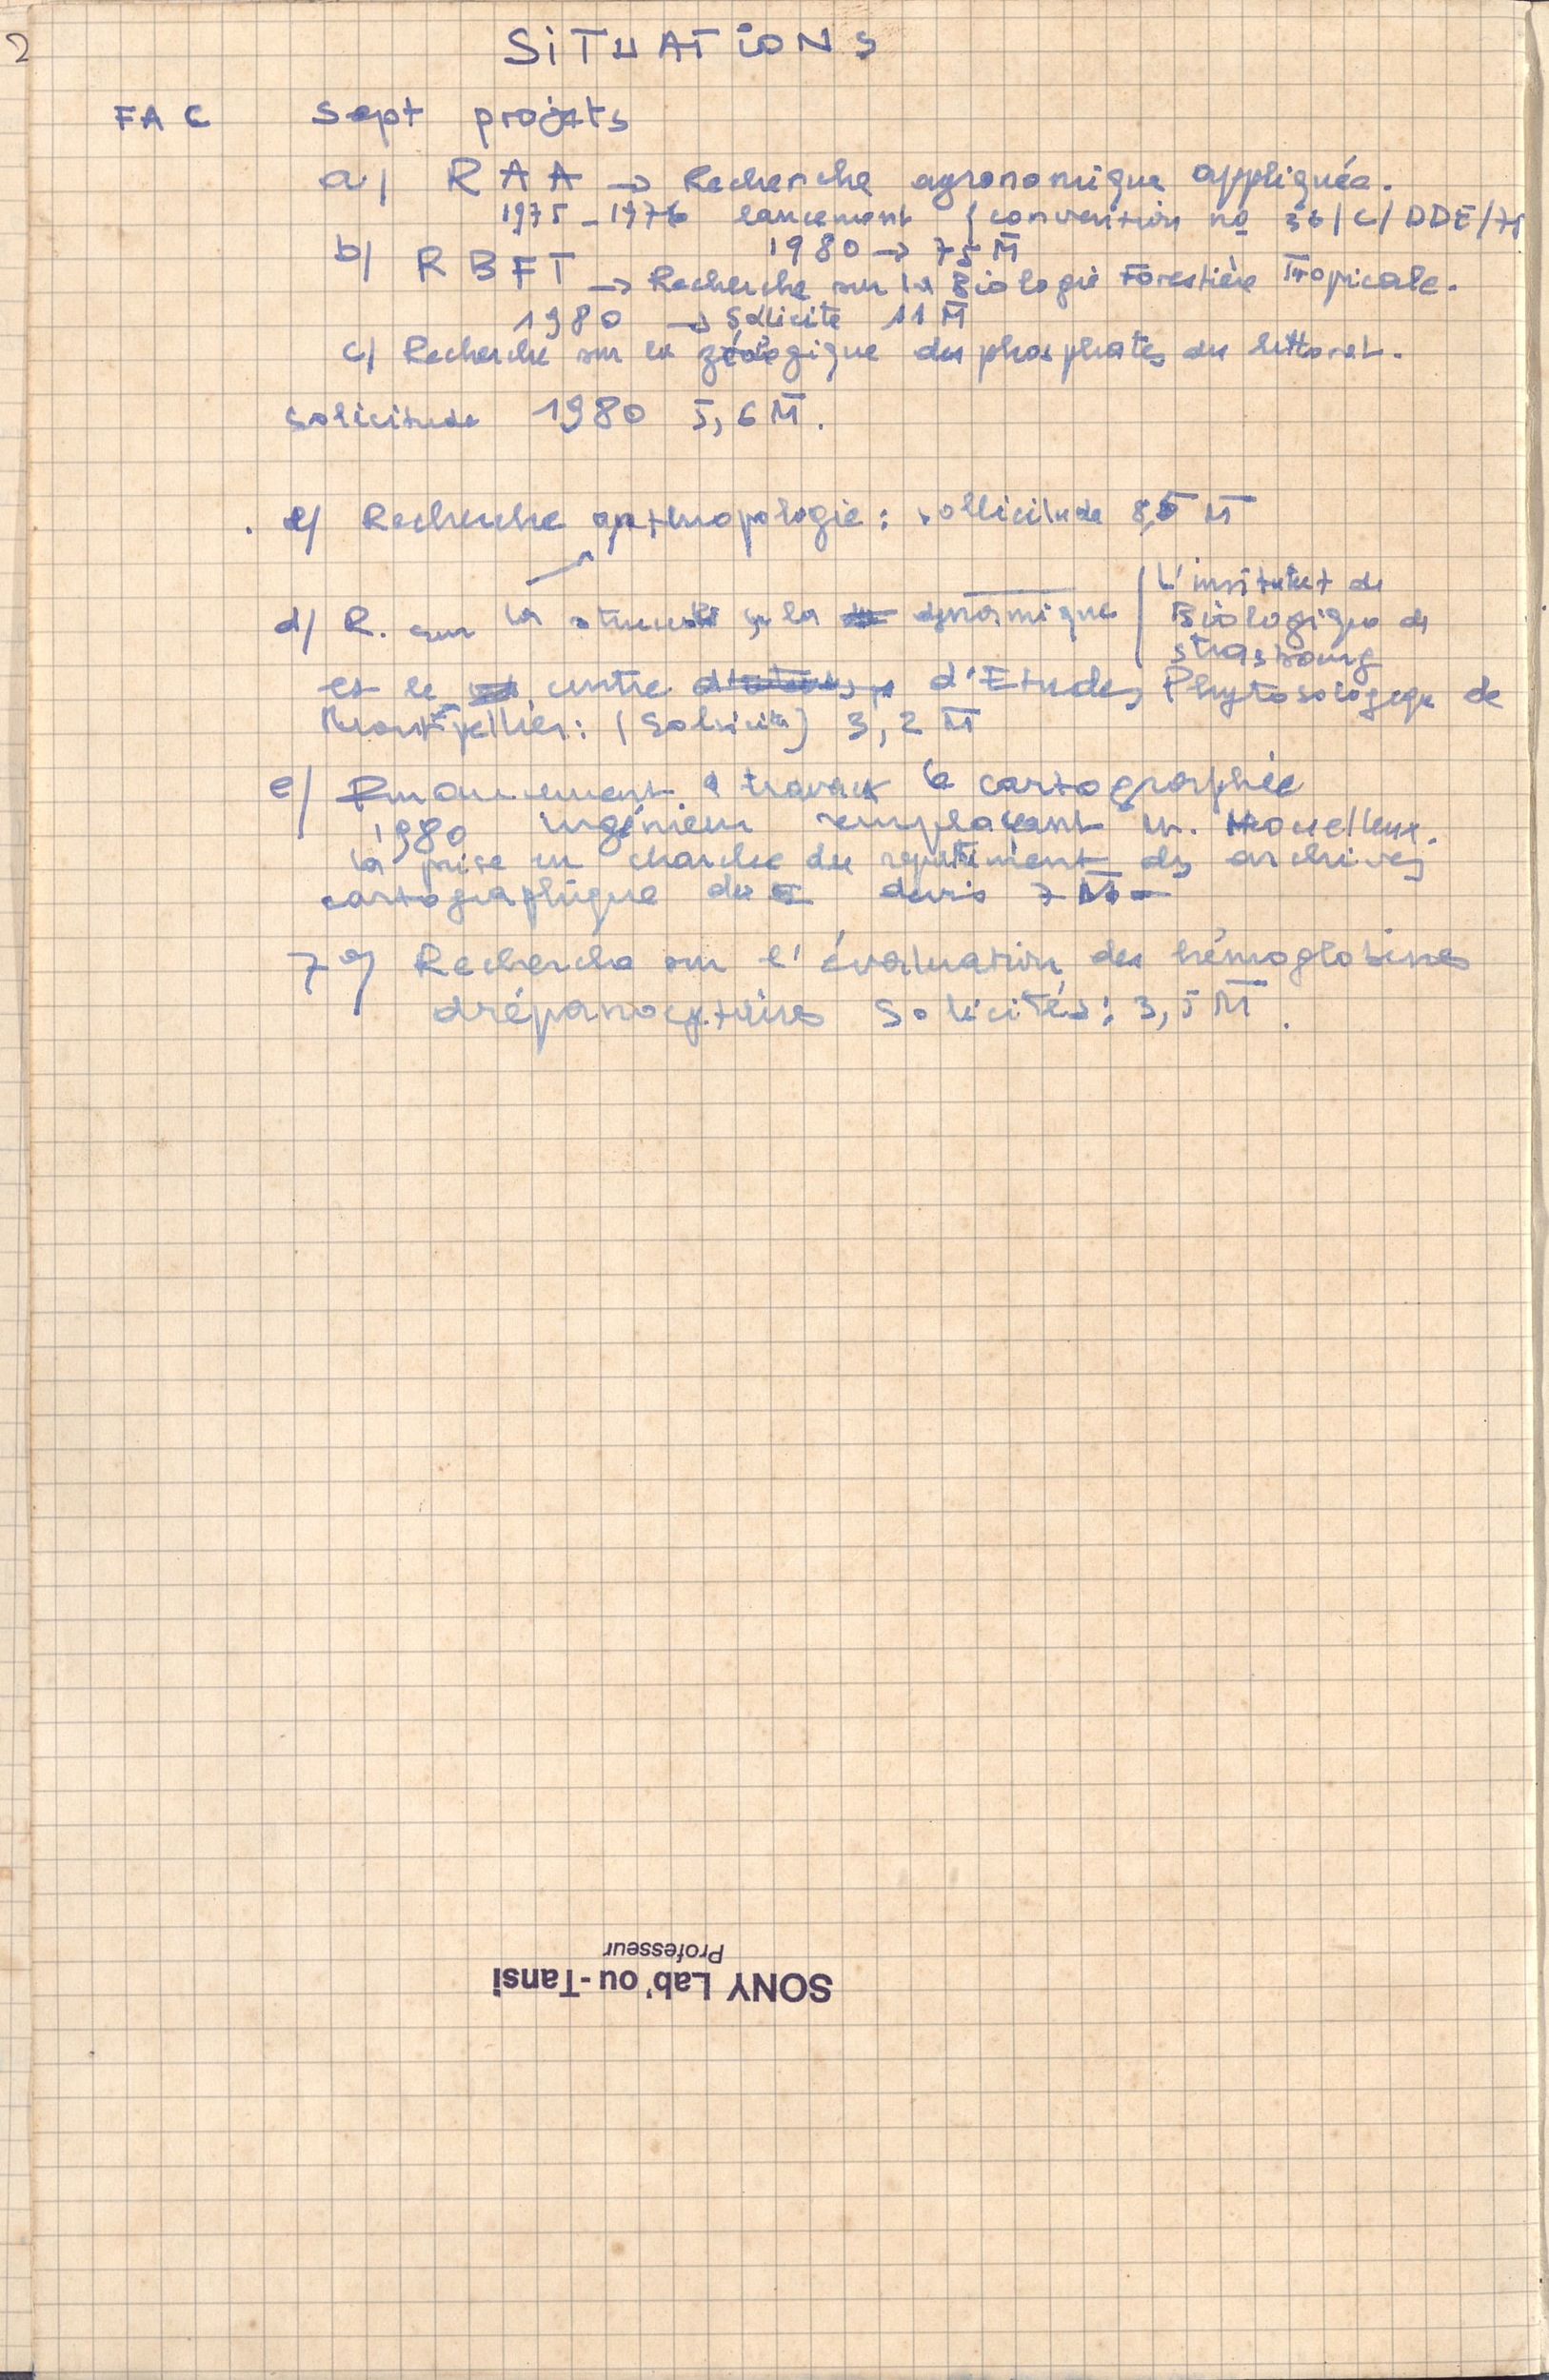 2
SiTUATiONS
FAC sept projets
a/ RAA → Recherche agronomique appliquée.
1975-1976 lancement (convention no 36/C/DDE/75
1980 → 75 M
b/ RBFT → Recherche sur la Biologie Forestière Tropicale.
1980 → Sollicité 11 M
c/ Recherche sur la géologique des phosphates du littoral.
solicitude 1980 5,6 M.
e/ Recherche anthropologie : sollicitude 8,5 M
d/ R. sur la structure sur la dynamique / L'institut de
Biologique de
Strasbourg
et le centre d'Etudes Phytosologique de
Montpellier : (Solicité) 3,2 M
e/ travaux cartographie
1980 ingénieur remplaçant M.
la prise en charche du des archives
cartographique du devis 7 M
7°/ Recherche sur l'évaluation des hémoglobines
drépanocytaires Solicités : 3,5 M.
SONY Lab'ou-Tansi
Professeur